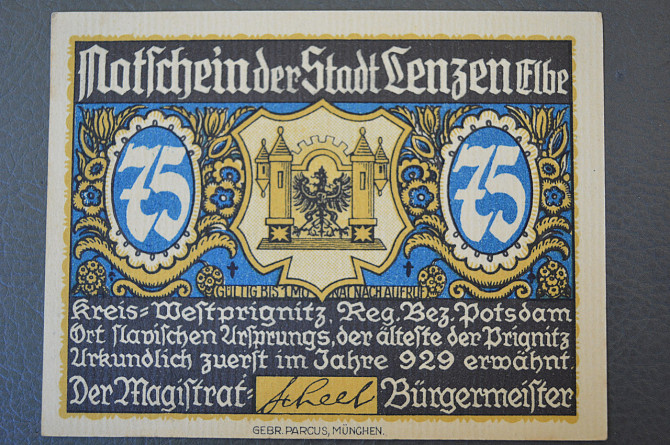 Notschein der Stadt Lenzen Elbe
75 75
GÜLTIG BIS 1 MONAT NACH AUFRUF
Kreis=Westprignitz, Reg. Bez. Potsdam
Ort slavischen Ursprungs, der älteste der Prignitz
Urkundlich zuerst im Jahre 929 erwähnt.
Der Magistrat: Scheel Bürgermeister
GEBR. PARCUS, MÜNCHEN.